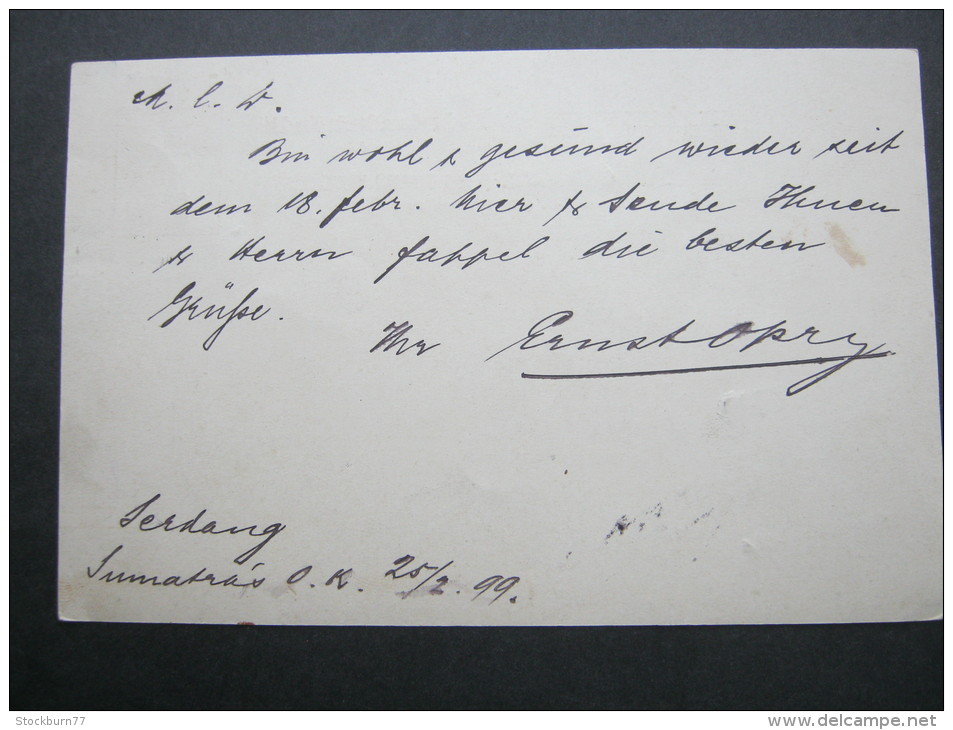 A. C. W.
Bin wohl & gesund wieder seit
dem 18. febr. hier & sende Ihnen
& Herrn fappel die besten
Grüße.
Ihr Ernst Opry
Serdang
Sumatra's O. K. 25/2. 99.
Stockburn77
www.delcampe.net